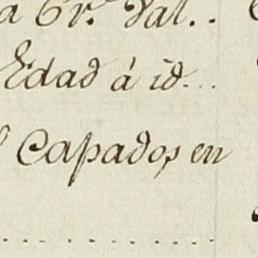 a Gr.ª Val..
Edad á id...
Capados en